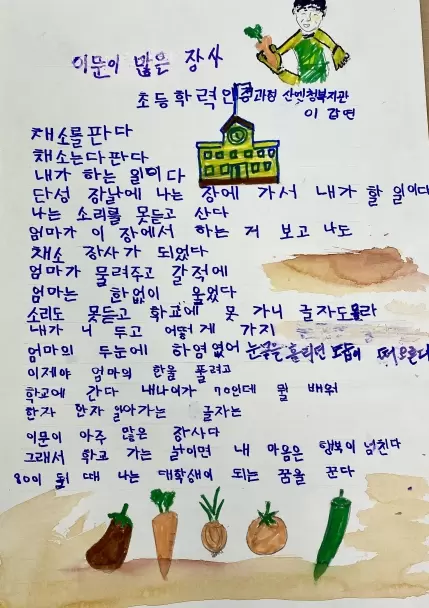 이문이 많은 장사
초등학력인정과정 산엔청복지관
이 갑연
채소를 판다
채소는 다 판다
내가 하는 일이다
단성 장날에 나는 장에 가서 내가 할 일이다
나는 소리를 못듣고 산다
엄마가 이 장에서 하는 거 보고 나도
채소 장사가 되었다
엄마가 물려주고 갈 적에
엄마는 한없이 울었다
소리도 못듣고 학교에 못 가니 글자도 몰라
내가 니 두고 어떻게 가지
엄마의 두눈에 하염없어 눈물을 흘리던 모습이 떠오른다
이제야 엄마의 한을 풀려고
학교에 간다 내나이가 70인데 뭘 배워
한자 한자 알아가는 글자는
이문이 아주 많은 장사다
그래서 학교 가는 날이면 내 마음은 행복이 넘친다
80이 될 때 나는 대학생이 되는 꿈을 꾼다